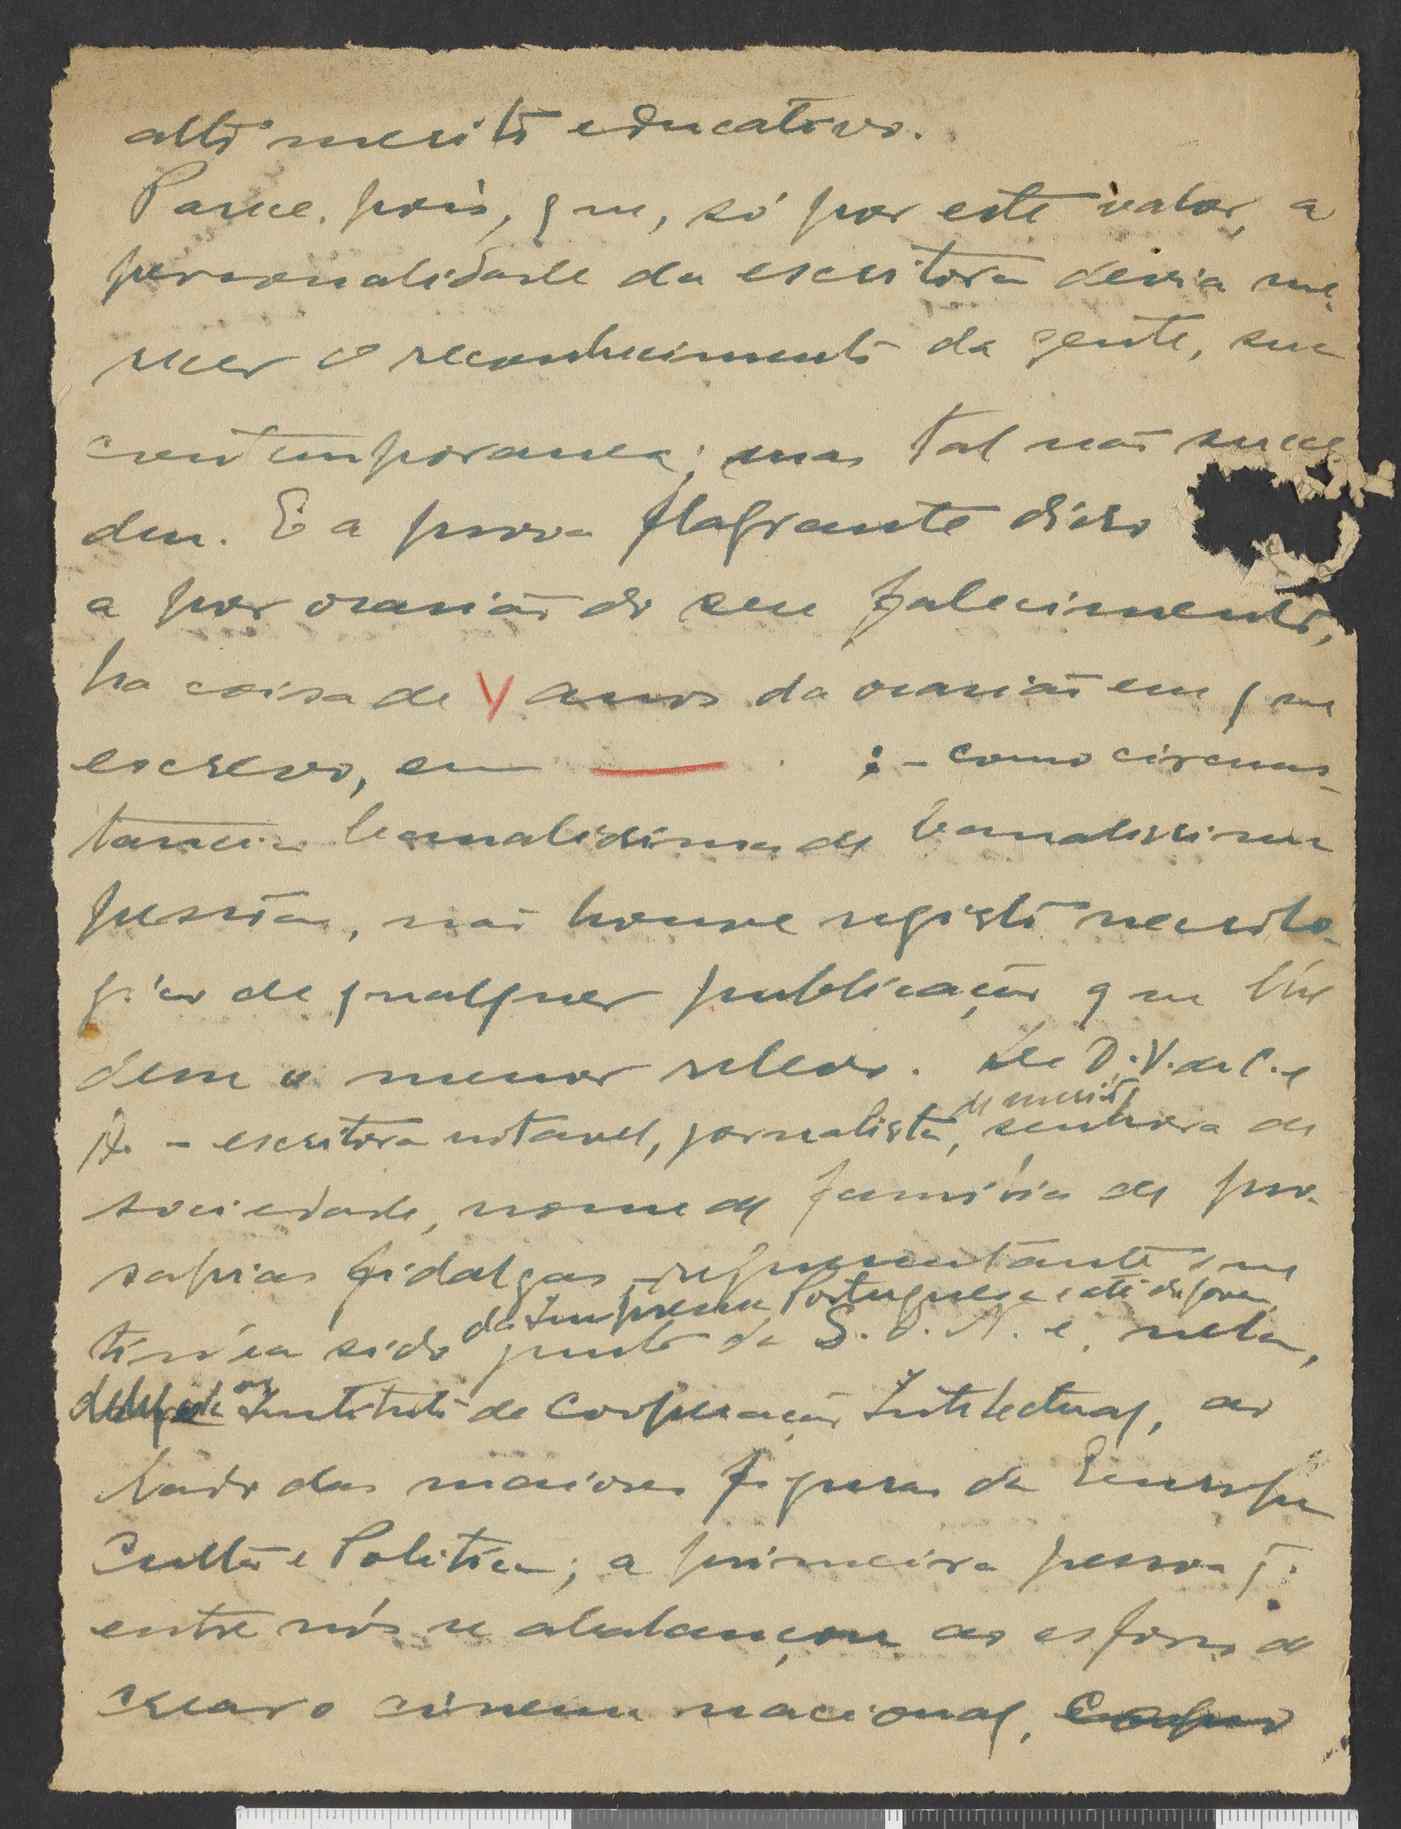 alto merito educativo.
Parece, pois, que, só por este valor, a
personalidade da escritora devia me-
recer o reconhecimento da gente, sua
contemporanea; mas tal não suce-
deu. E a prova flagrante disso
a por ocasião do seu falecimento,
ha coisa de Y anos da ocasião em que
escrevo, em ——— : - como circuns-
tancia banalissima de banalissima
pessôa, não houve registo necrolo-
gico de qualquer publicação que lhe
desse o menor relevo. De D. V. de C. e
A. - escritora notavel, jornalista, de merito senhora de
sociedade, nome de familia de pro-
sapias fidalgas, representante que
tinha sido da Imprensa Portuguesa junto da S. D. N. e, nela,
delegada ao Instituto de Cooperação Intelectual, ao
lado das maiores figuras da Europa
Culta e Politica; a primeira pessoa q.
entre nós se abalançou ao esforço de
crear o cinema nacional,